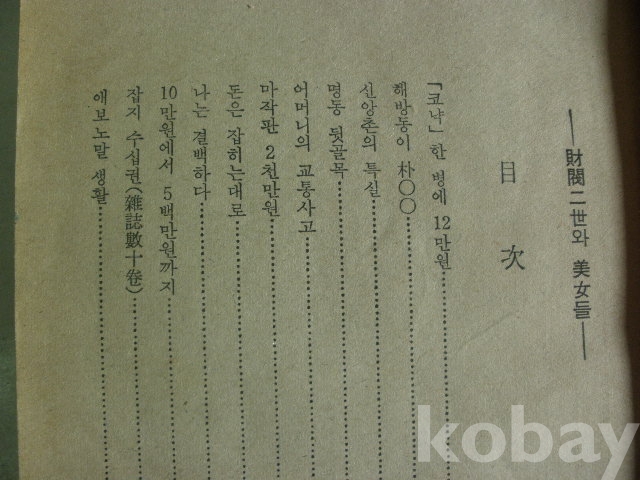 ──財閥二世와 美女들──
目次
「코냑」한 병에 12만원
해방동이 朴○○
신앙촌의 특실
명동 뒷골목
어머니의 교통사고
마작판 2천만원
돈은 잡히는대로
나는 결백하다
10만원에서 5백만원까지
잡지 수십권(雜誌數十卷)
애보노말 생활
kobay